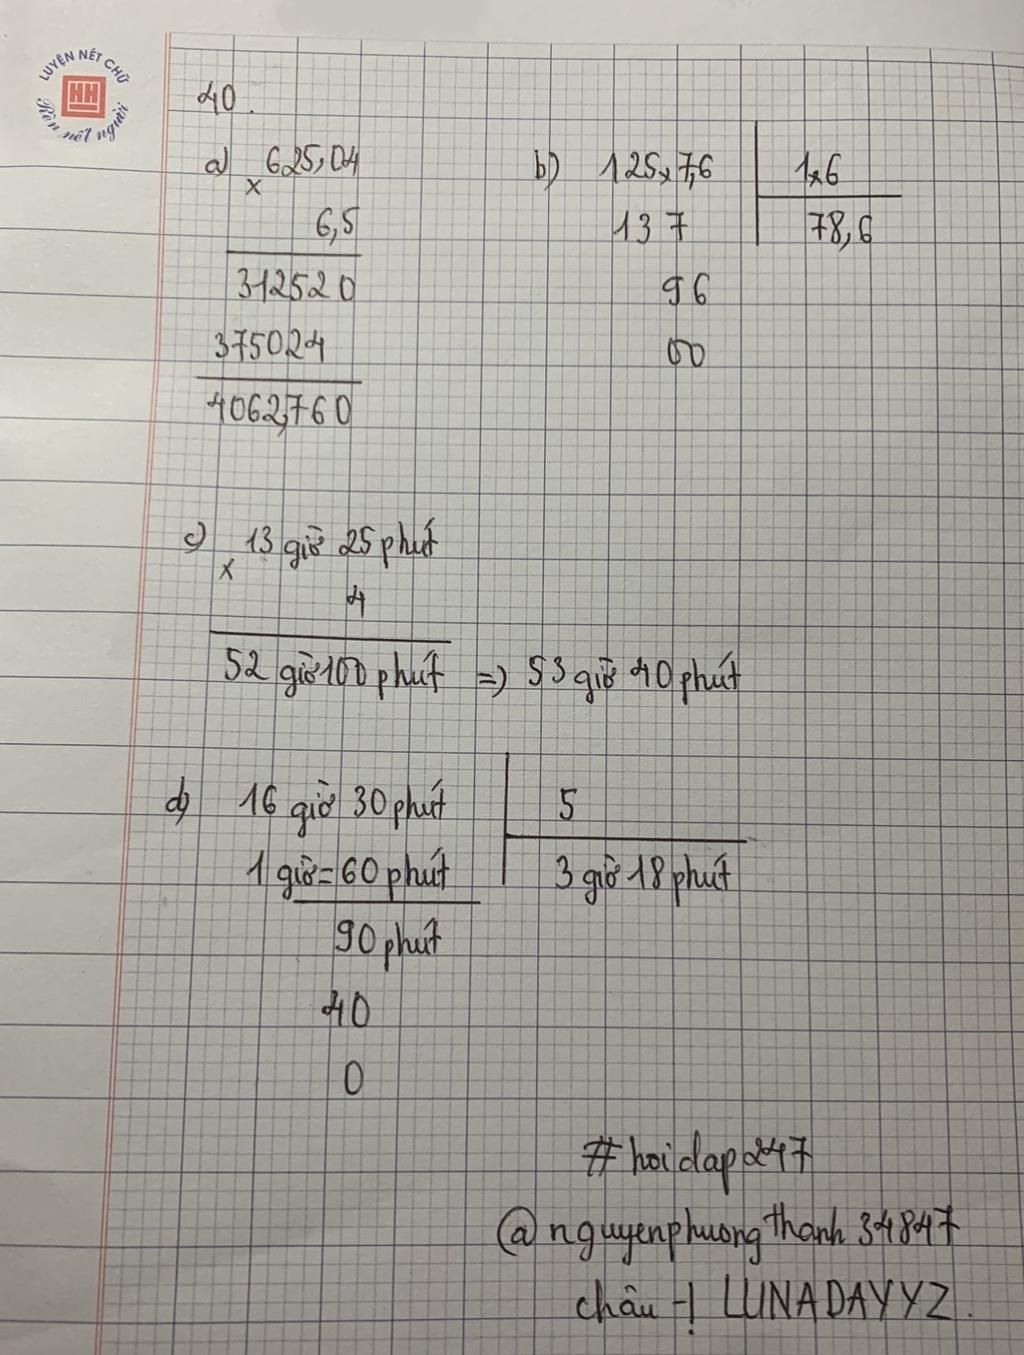 LUYỆN NÉT CHỮ
HH
Rèn nết người
40.
a) 625,04
x
6,5
312520
375024
4062,760
b) 125x7,6 1x6
137 78,6
96
00
c) 13 giờ 25 phút
x
4
52 giờ 100 phút => 53 giờ 40 phút
d) 16 giờ 30 phút 5
1 giờ = 60 phút 3 giờ 18 phút
90 phút
40
0
# hoidap247
@nguyenphuongthanh34847
châu -! LUNADAYYZ.